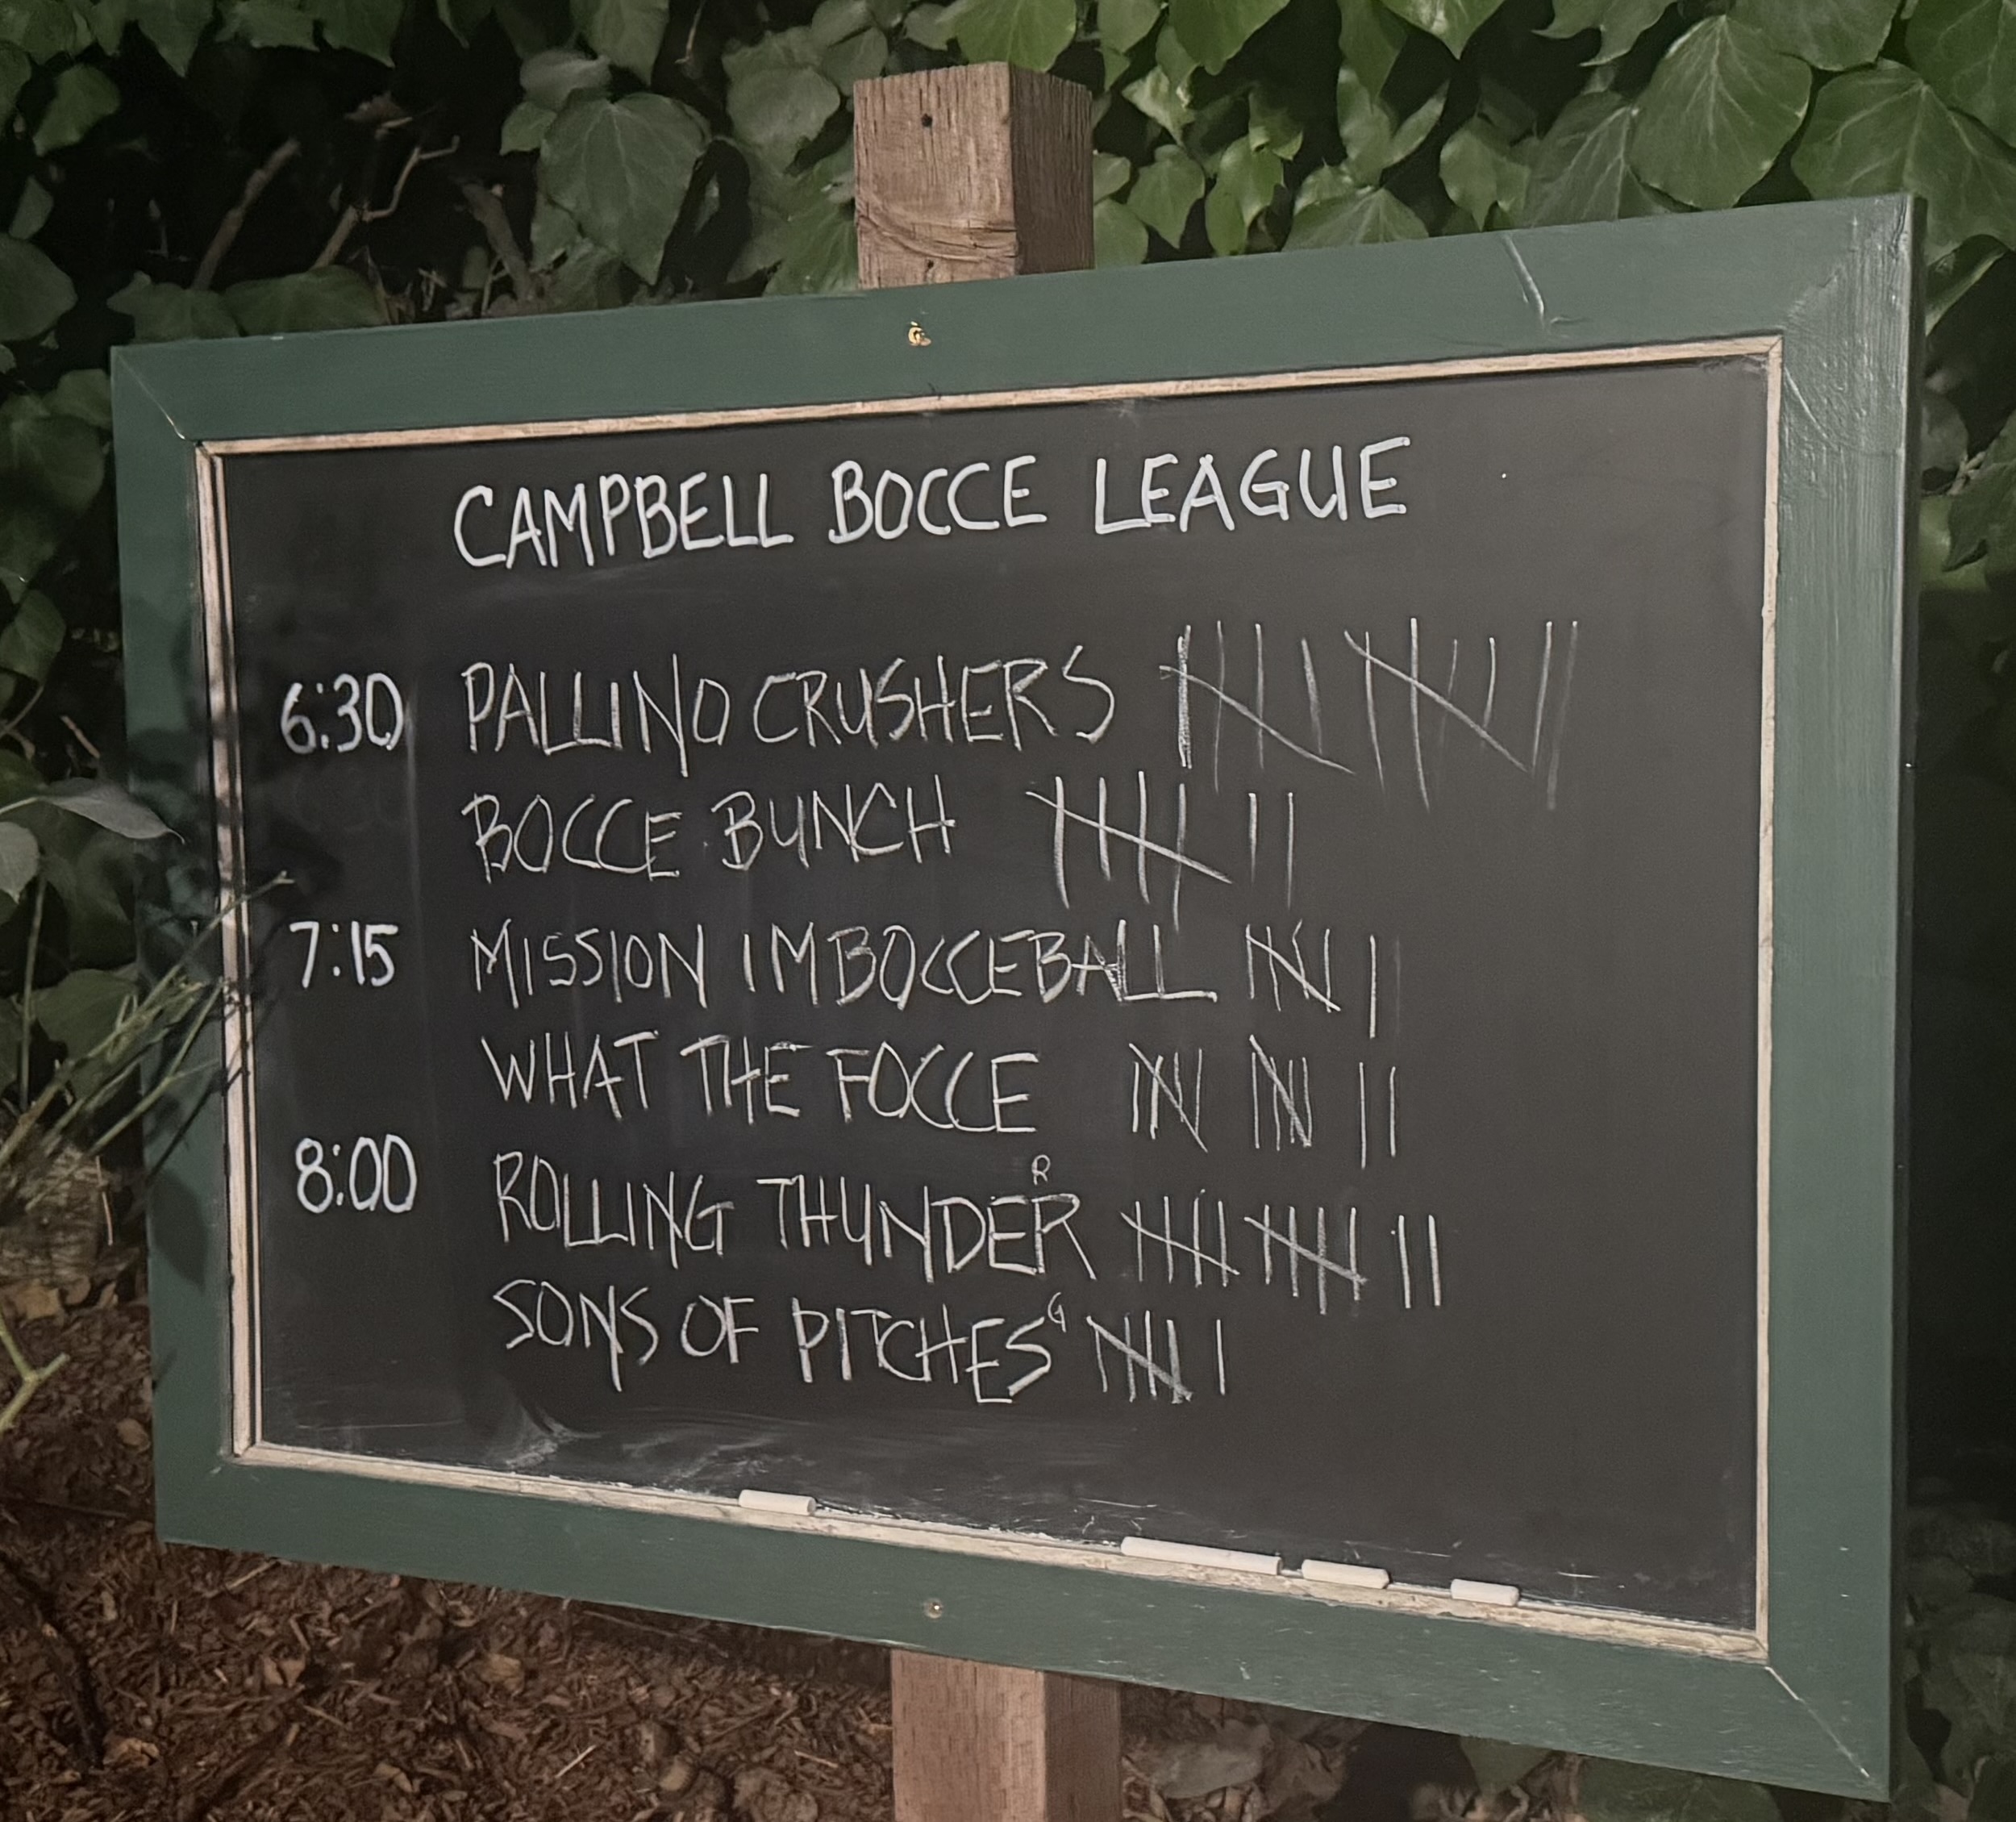 CAMPBELL BOCCE LEAGUE
6:30 PALLINO CRUSHERS 𝍸 𝍸 ||
BOCCE BUNCH 𝍸 ||
7:15 MISSION IMBOCCEBALL 𝍸 |
WHAT THE FOCCE 𝍸 𝍸 ||
8:00 ROLLING THUNDER R 𝍸 𝍸 ||
SONS OF PITCHES G 𝍸 |